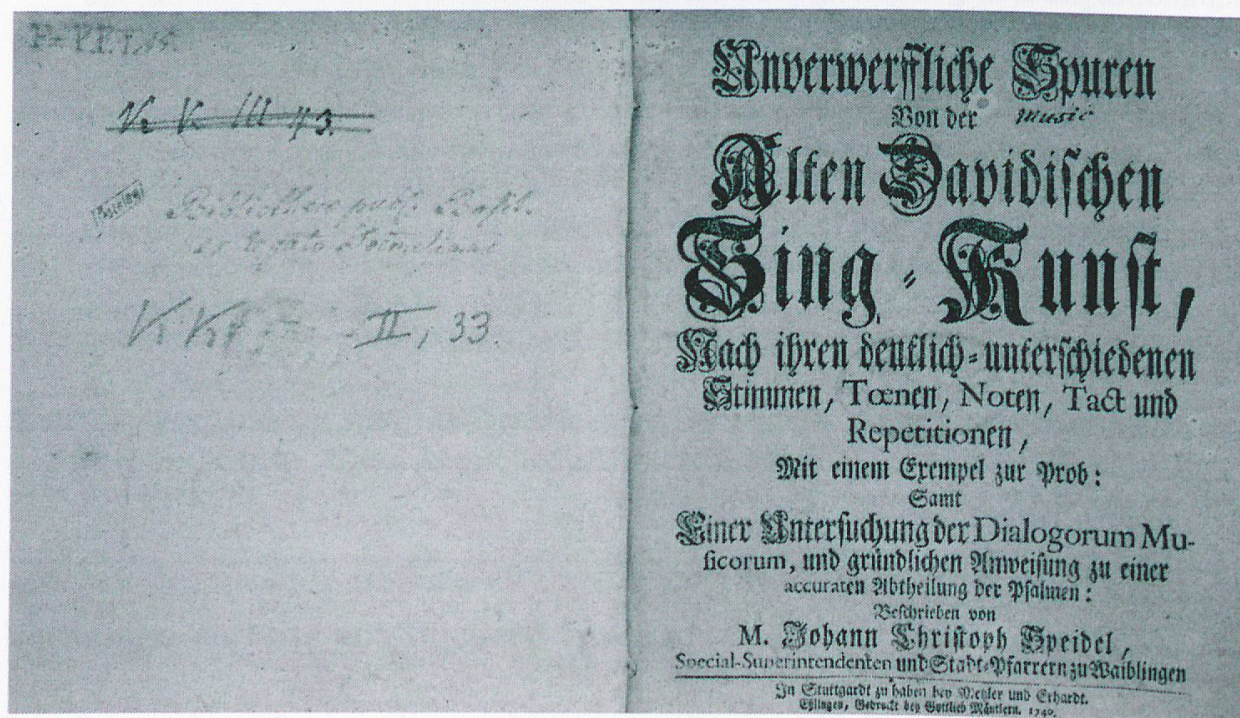 V. K III 43.
Bibliothec. publ. Basil.
ex legato
II, 33.
Unverwerffliche Spuren
Von der Music
Alten Davidischen
Sing-Kunst,
Nach ihren deutlich-unterschiedenen
Stimmen, Tœnen, Noten, Tact und
Repetitionen,
Mit einem Exempel zur Prob:
Samt
Einer Untersuchung der Dialogorum Mu-
sicorum, und gründlichen Anweisung zu einer
accuraten Abtheilung der Psalmen:
Beschrieben von
M. Johann Christoph Speidel,
Special-Superintendenten und Stadt-Pfarrern zu Waiblingen
In Stuttgardt zu haben bey Metzler und Erhardt.
Eßlingen, Gedruckt bey Gottlieb Mäntlern. 1740.